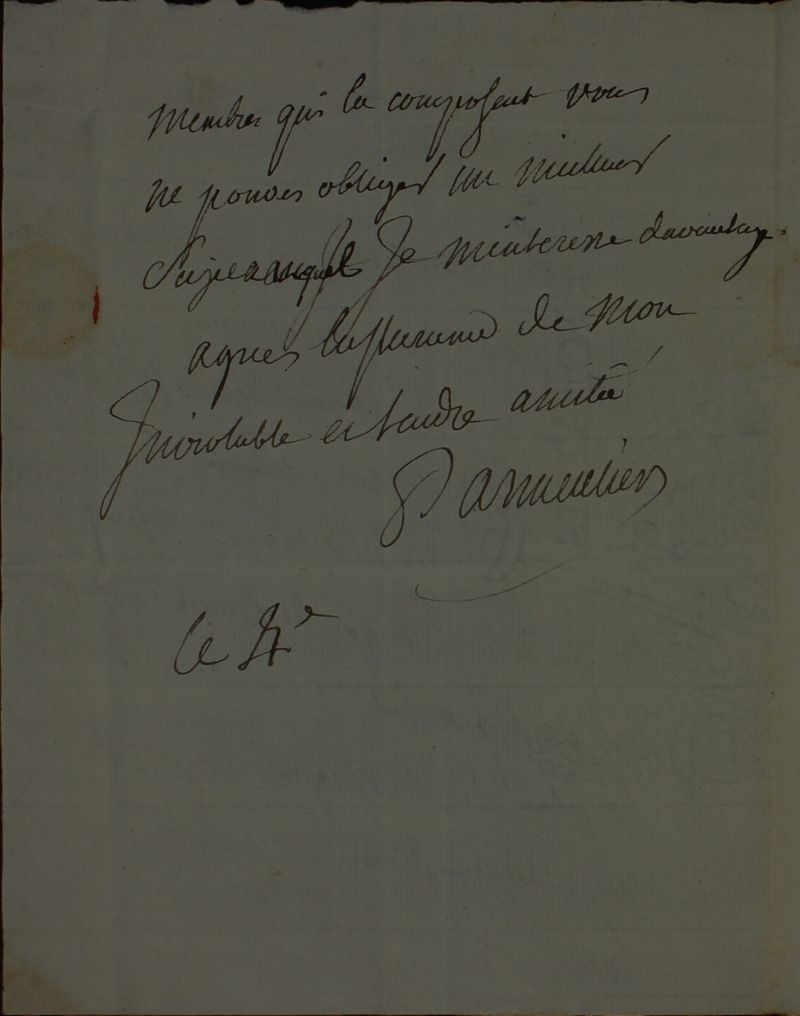 membres qui la composent vous
ne pouves obliger un meilleur
Sujet auquel Je Je minteresse davantage.
agrees lassurance de mon
Inviolable et tendre amitié
Parmentier
Le 4e